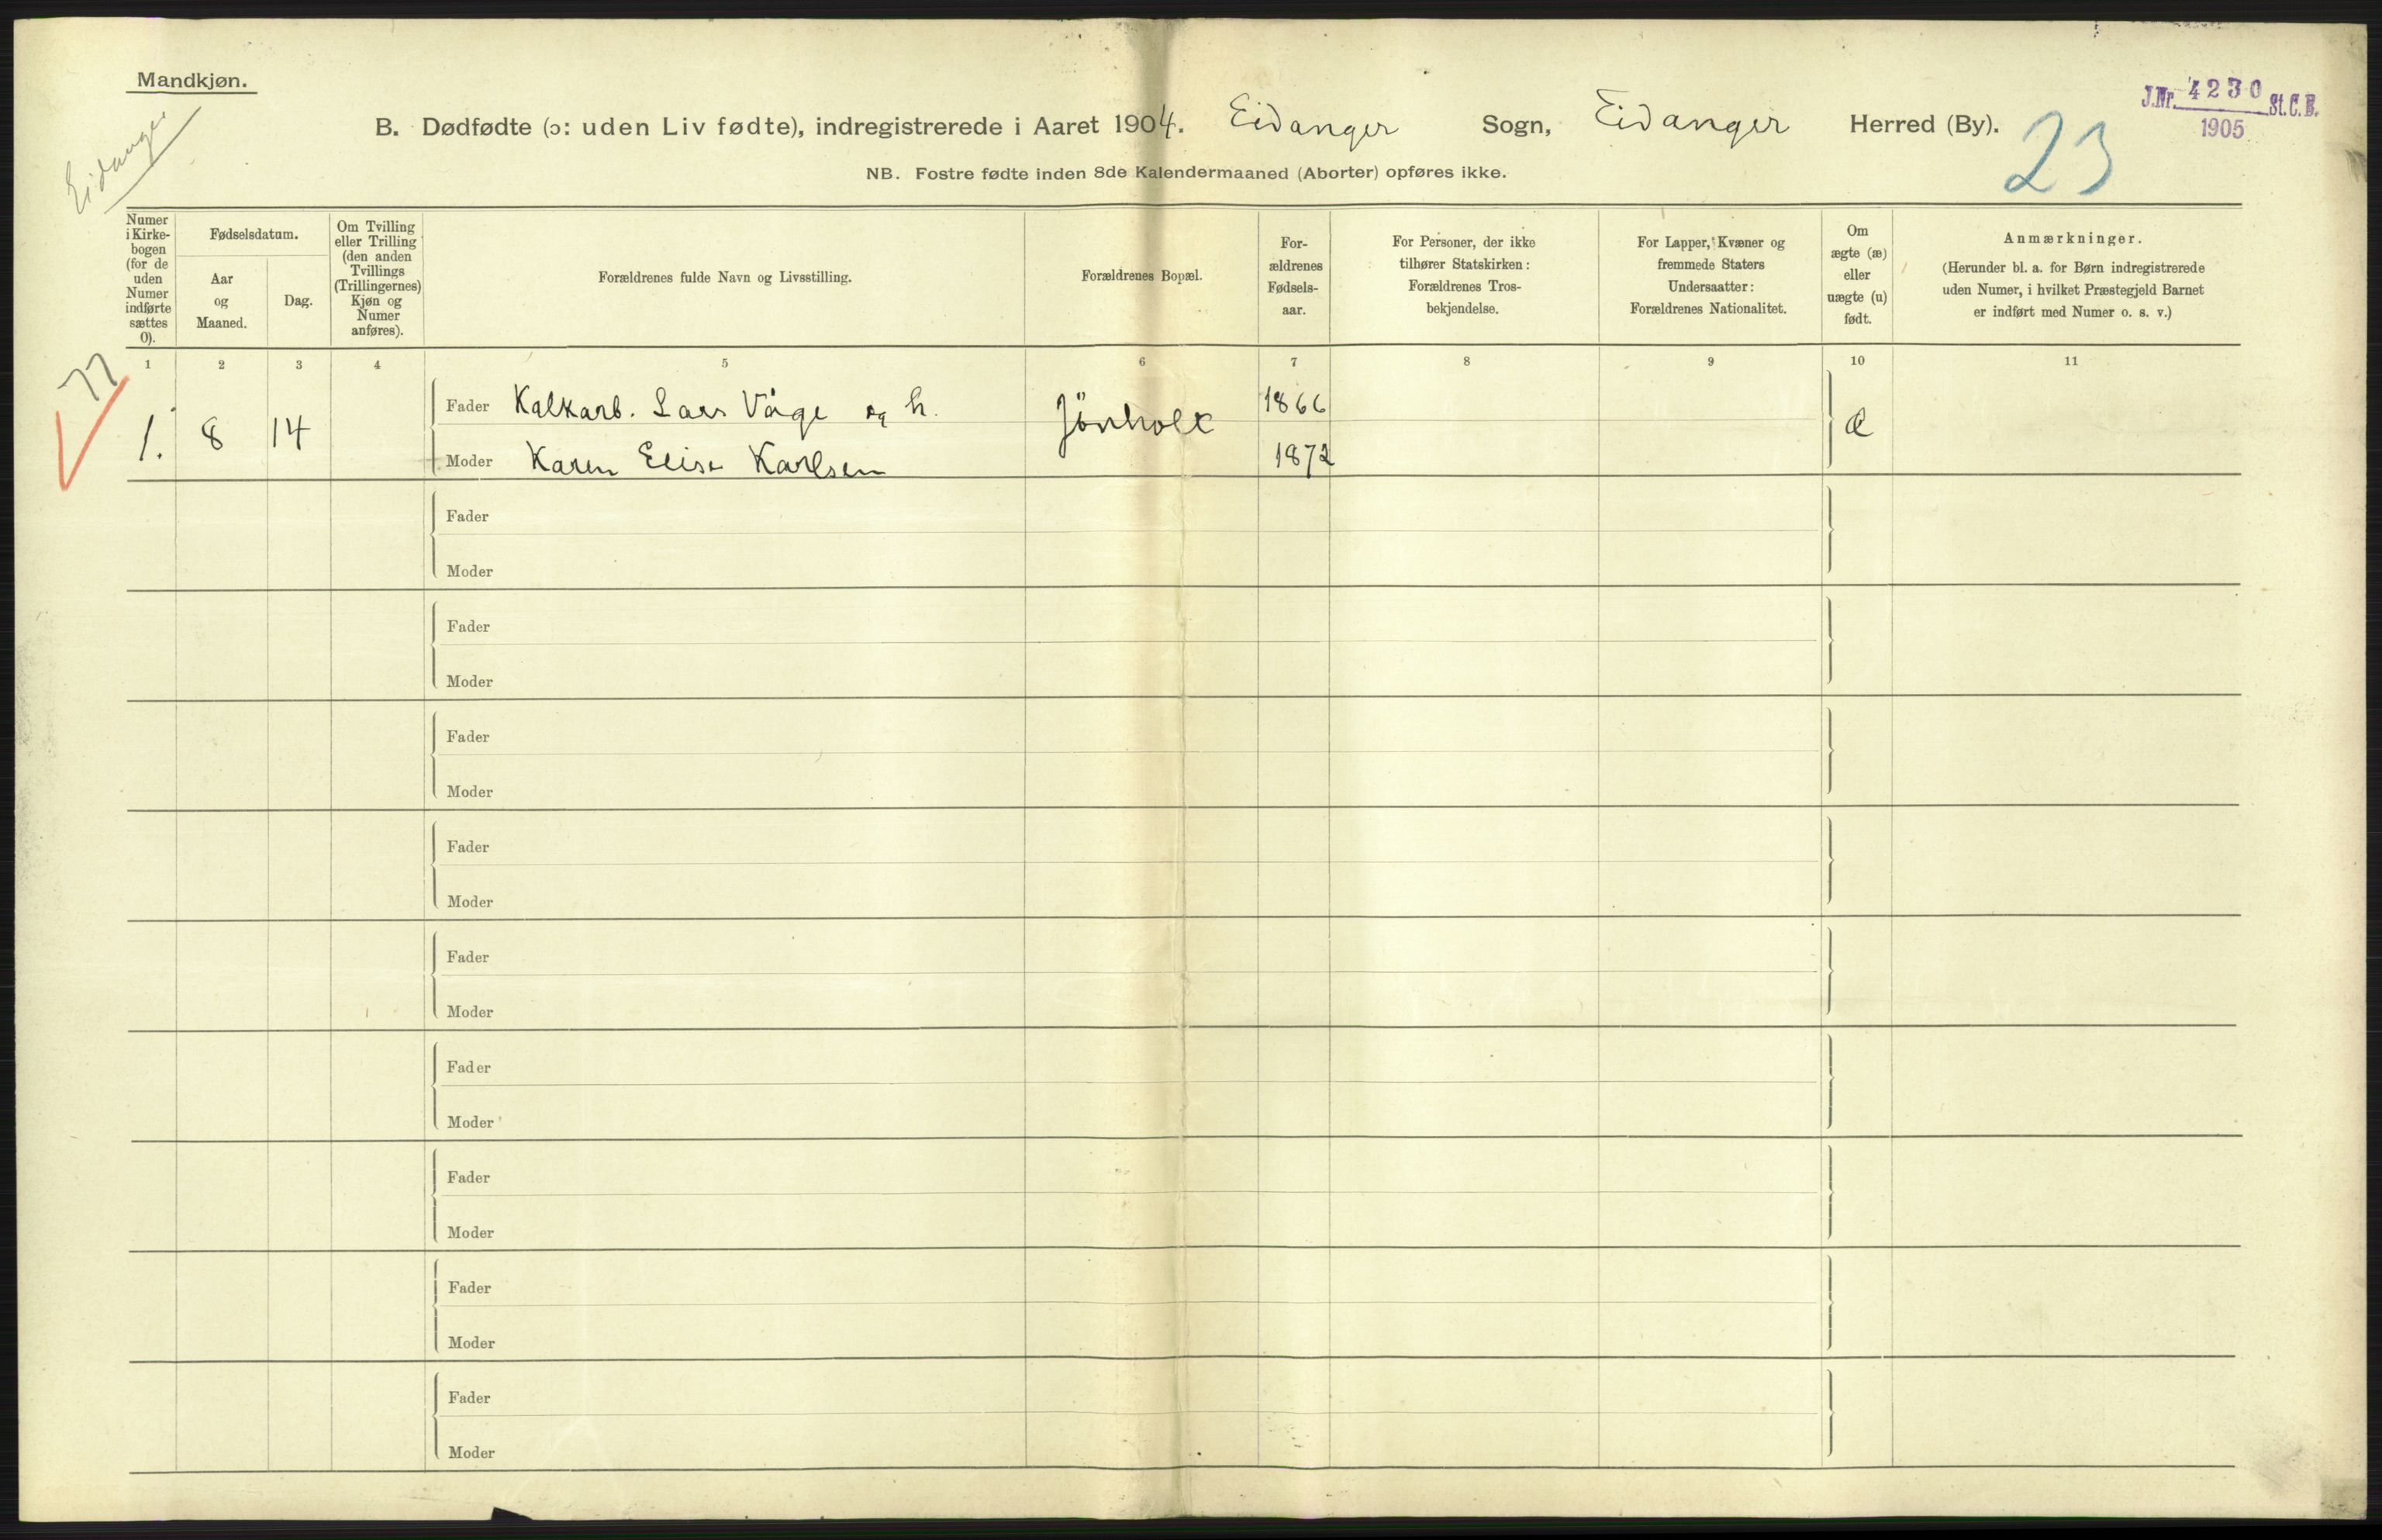 Mandkjøn.
Eidanger
B. Dødfødte (ɔ: uden Liv fødte), indregistrerede i Aaret 1904. Eidanger Sogn, Eidanger Herred (By).
J.Nr. 4230 St.C.B.
1905
23
NB. Fostre fødte inden 8de Kalendermaaned (Aborter) opføres ikke.
Numer
i Kirke-
bogen
(for de
uden
Numer
indførte
sættes
0).
Fødselsdatum.
Aar
og
Maaned.
Dag.
Om Tvilling
eller Trilling
(den anden
Tvillings
(Trillingernes)
Kjøn og
Numer
anføres).
Forældrenes fulde Navn og Livsstilling.
Forældrenes Bopæl.
For-
ældrenes
Fødsels-
aar.
For Personer, der ikke
tilhører Statskirken:
Forældrenes Tros-
bekjendelse.
For Lapper, Kvæner og
fremmede Staters
Undersaatter:
Forældrenes Nationalitet.
Om
ægte (æ)
eller
uægte (u)
født.
Anmærkninger.
(Herunder bl. a. for Børn indregistrerede
uden Numer, i hvilket Præstegjeld Barnet
er indført med Numer o. s. v.)
1 2 3 4 5 6 7 8 9 10 11
77
1. 8 14
Fader Kalkarb. Lars Våge og h. Jönholt 1866 Æ
Moder Karen Elise Karlsen 1872
Fader
Moder
Fader
Moder
Fader
Moder
Fader
Moder
Fader
Moder
Fader
Moder
Fader
Moder
Fader
Moder
Fader
Moder